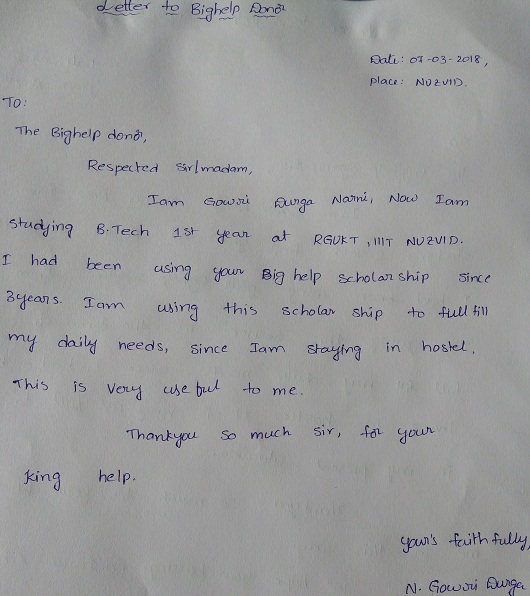 Letter to Bighelp Donor
Date: 07-03-2018,
Place: NUZVID.
To:
The Bighelp donor,
Respected Sir/madam,
Iam Gowri Durga Narni, Now Iam
Studying B.Tech 1st year at RGUKT, IIIT NUZVID.
I had been using your Big help scholar ship since
3years. Iam using this scholar ship to full fill
my daily needs, since Iam staying in hostel.
This is very use ful to me.
Thankyou so much sir, for your
king help.
your's faith fully,
N. Gowri Durga